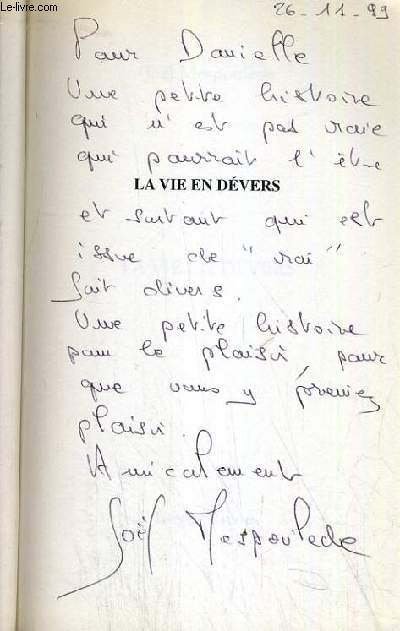 Le-livre.com
26-11-99
Pour Danielle
Une petite histoire
qui n'est pas vraie
qui pourrait l'être
LA VIE EN DÉVERS
et surtout qui est
issue de "vrai"
fait divers.
Une petite histoire
pour le plaisir, pour
que vous y preniez
plaisir.
Amicalement
Joël Mespoulède